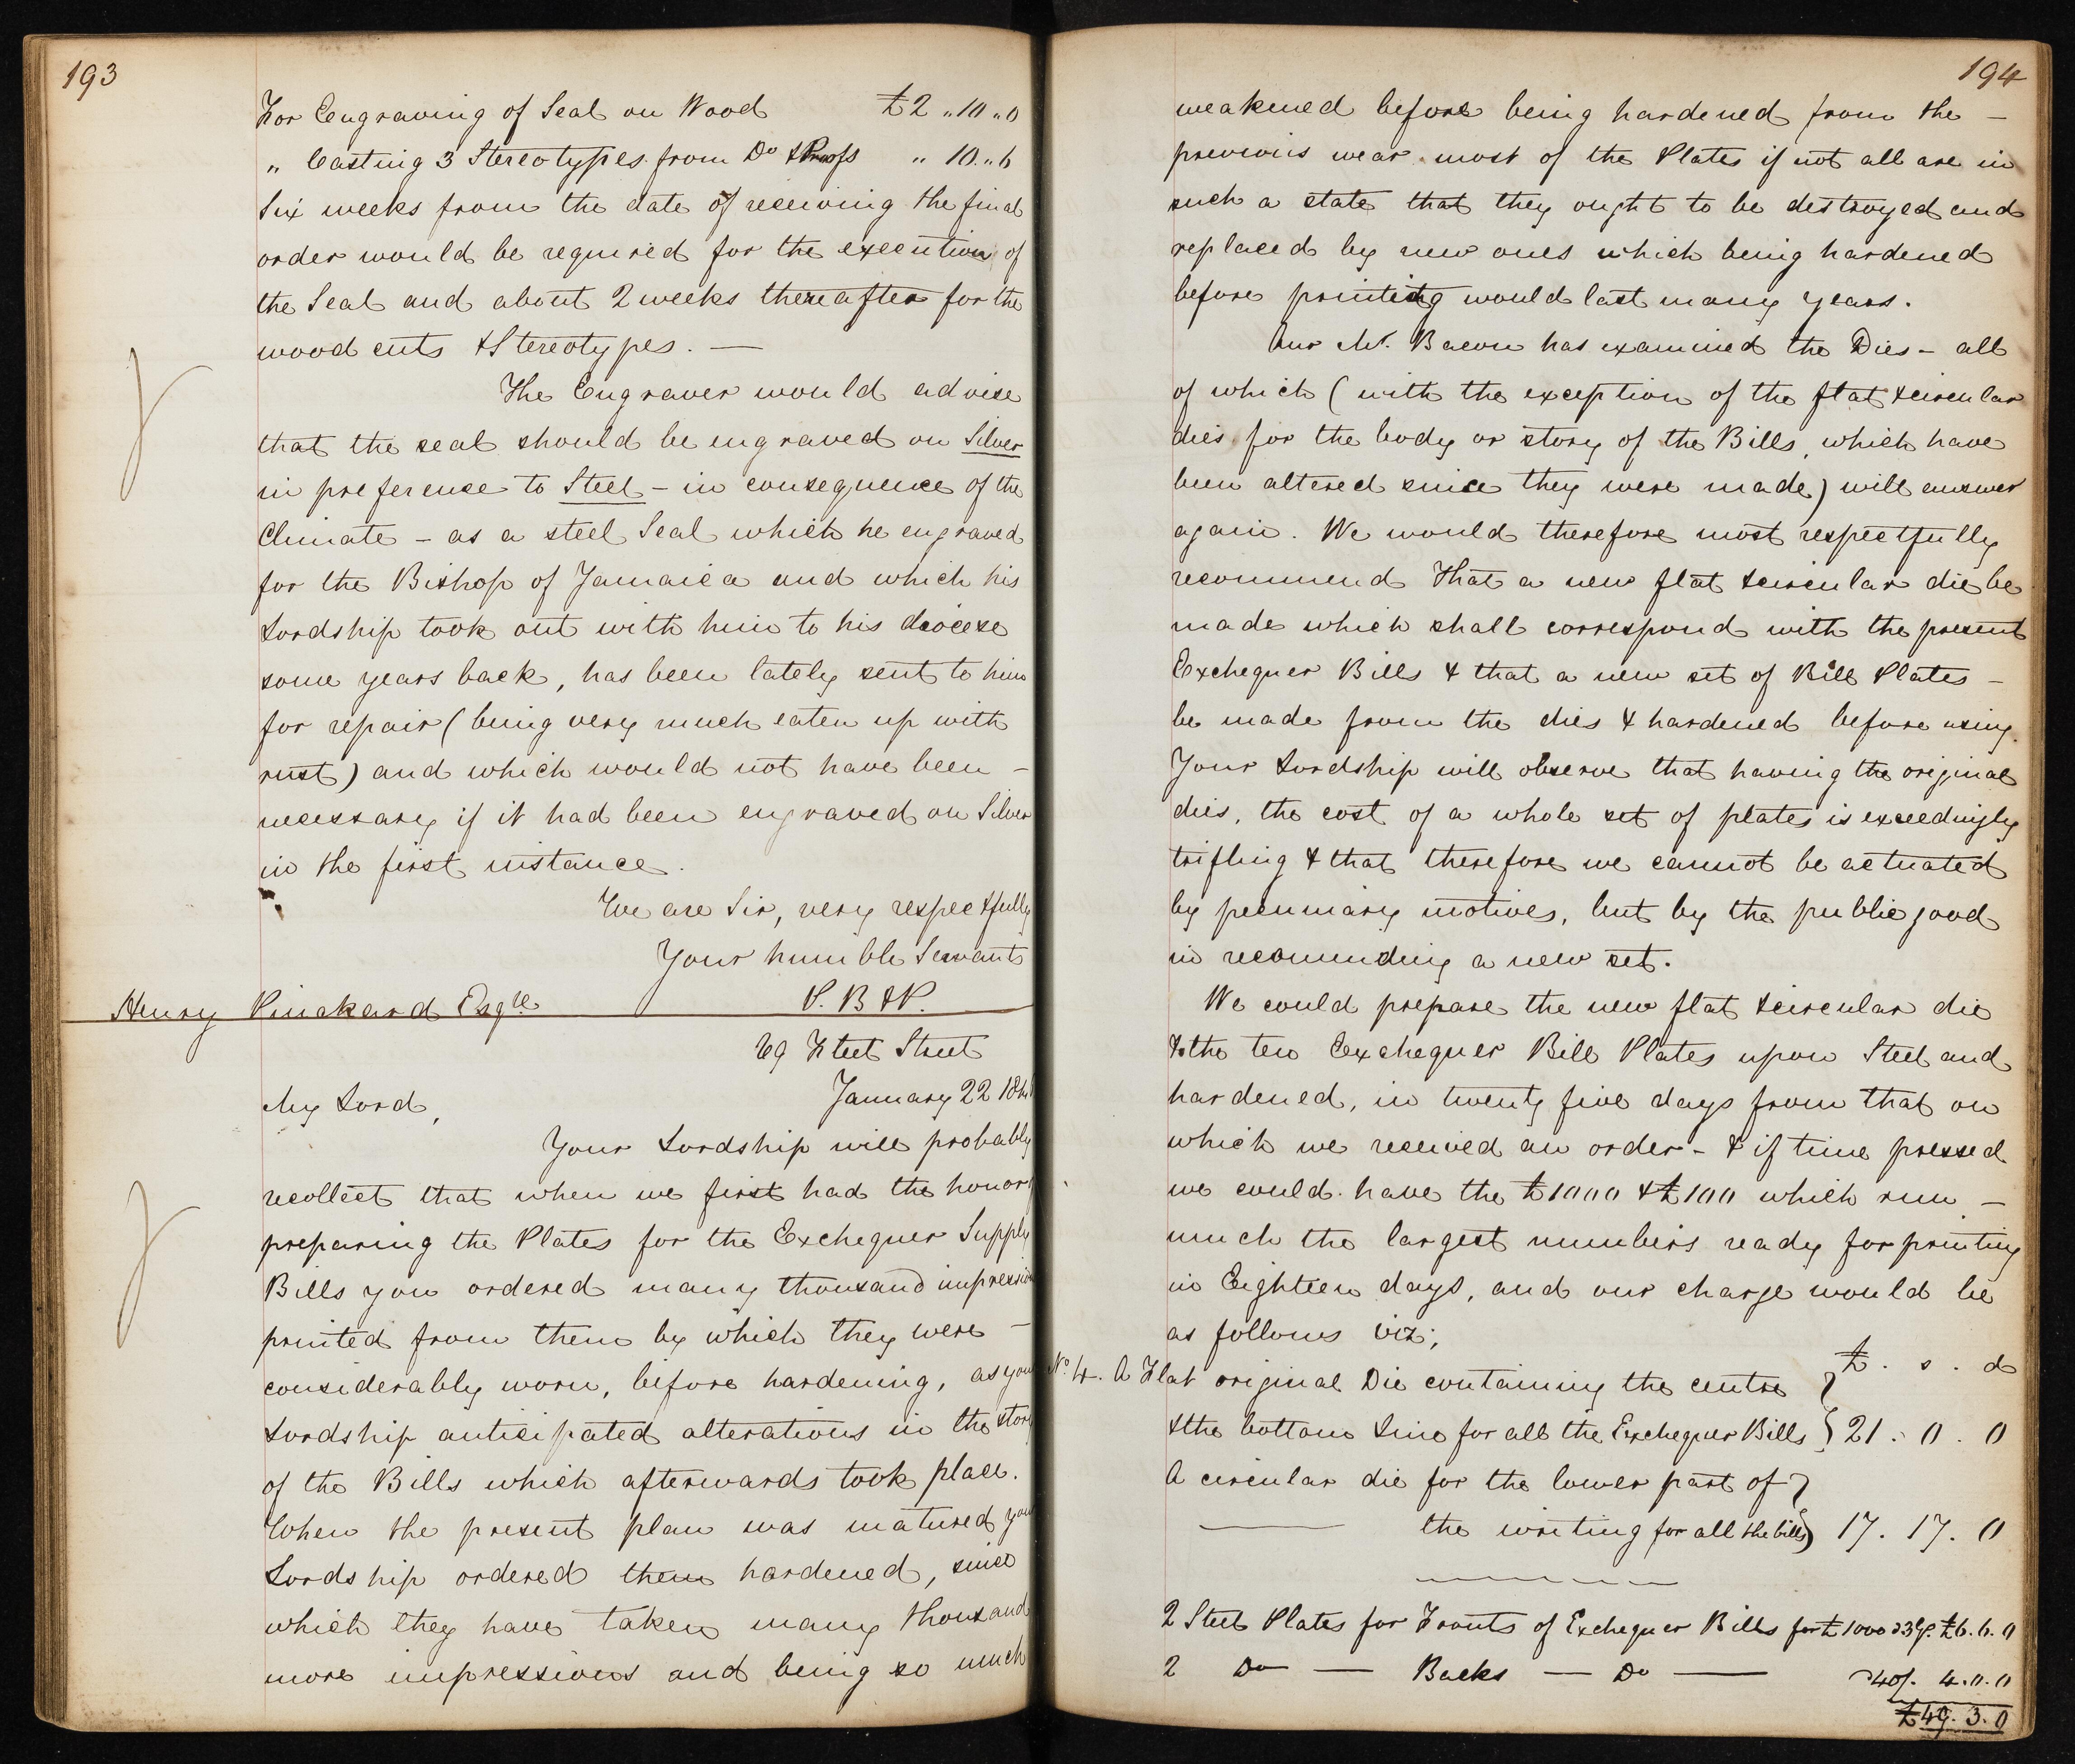 193
For Engraving of Seal on Wood £2 „ 10 „ 0
„ Casting 3 Stereotypes from Do & Proofs „ 10 „ 6
Six weeks from the date of receiving the final
order would be required for the execution of
the Seal and about 2 weeks thereafter for the
wood cuts & Stereotypes. —
The Engraver would advise
that the seal should be engraved on Silver
in preference to Steel – in consequence of the
Climate – as a steel Seal which he engraved
for the Bishop of Jamaica and which his
Lordship took out with him to his diocese
some years back, has been lately sent to him
for repair (being very much eaten up with
rust) and which would not have been –
necessary if it had been engraved on Silver
in the first instance.
We are Sir, very respectfully
Your humble Servants
P. B & P.
Henry Pinckard Esqre
69 Fleet Street
January 22 184
My Lord,
Your Lordship will probably
recollect that when we first had the honor
preparing the Plates for the Exchequer Supply
Bills you ordered many thousand impression
printed from them by which they were –
considerably worn, before hardening, as you
Lordship anticipated alterations in the stor
of the Bills which afterwards took place.
When the present plan was matured you
Lordship ordered them hardened, since
which they have taken many thousand
more impressions and being so much
194
weakened before being hardened from the –
previous wear most of the Plates if not all are in
such a state that they ought to be destroyed and
replaced by new ones which being hardened
before printing would last many years.
Our Mr. Bacon has examined the Dies – all
of which (with the exception of the flat & circular
dies for the body or story of the Bills, which have
been altered since they were made) will answer
again. We would therefore most respectfully
recommend that a new flat & circular die be
made which shall correspond with the present
Exchequer Bills & that a new set of Bill Plates –
be made from the dies & hardened before using.
Your Lordship will observe that having the original
dies, the cost of a whole set of plates is exceedingly
trifling & that therefore we cannot be actuated
by pecuniary motives, but by the public good
in recomending a new set.
We could prepare the new flat & circular die
& the ten Exchequer Bill Plates upon Steel and
hardened, in twenty five days from that on
which we received an order – & if time pressed
we could have the £1000 & £100 which run –
much the largest numbers ready for printing
in Eighteen days, and our charge would be
as follows viz;
£ . s . d
No. 4. A Flat original Die containing the centre
& the bottom Line for all the Exchequer Bills } 21 . 0 . 0
A circular die for the lower part of
— the writing for all the bills } 17 . 17 . 0
2 Steel Plates for Fronts of Exchequer Bills for £1000 @ 3 Gs. £6.6.0
2 Do — Backs — Do — @ 40/. 4.0.0
£49.3.0